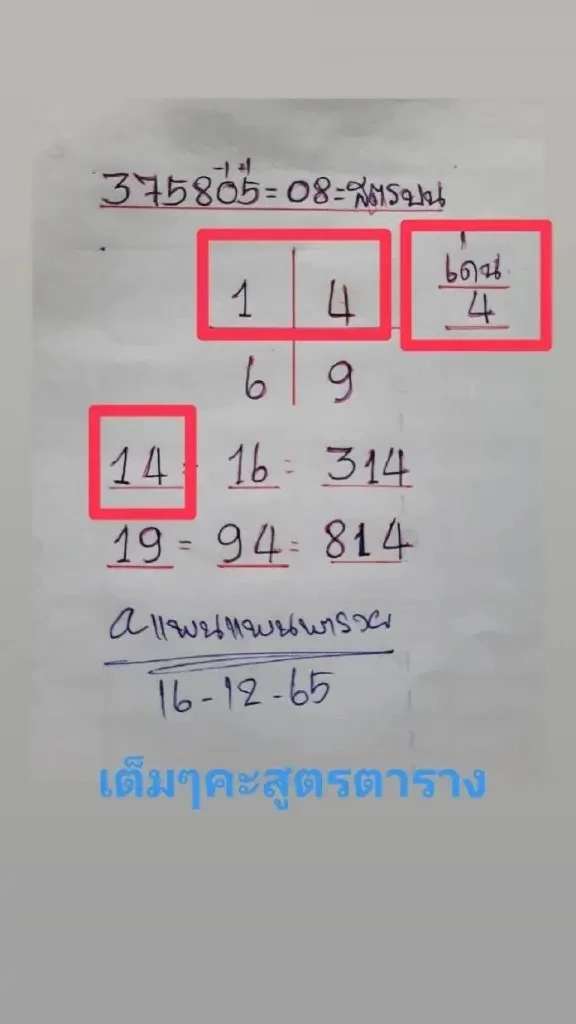 375805=08=สูตรบน
-1 +1
1 4
เด่น
4
6 9
14 = 16 = 314
19 = 94 = 814
aแพนแพนพารวย
16-12-65
เต็มๆคะสูตรตาราง